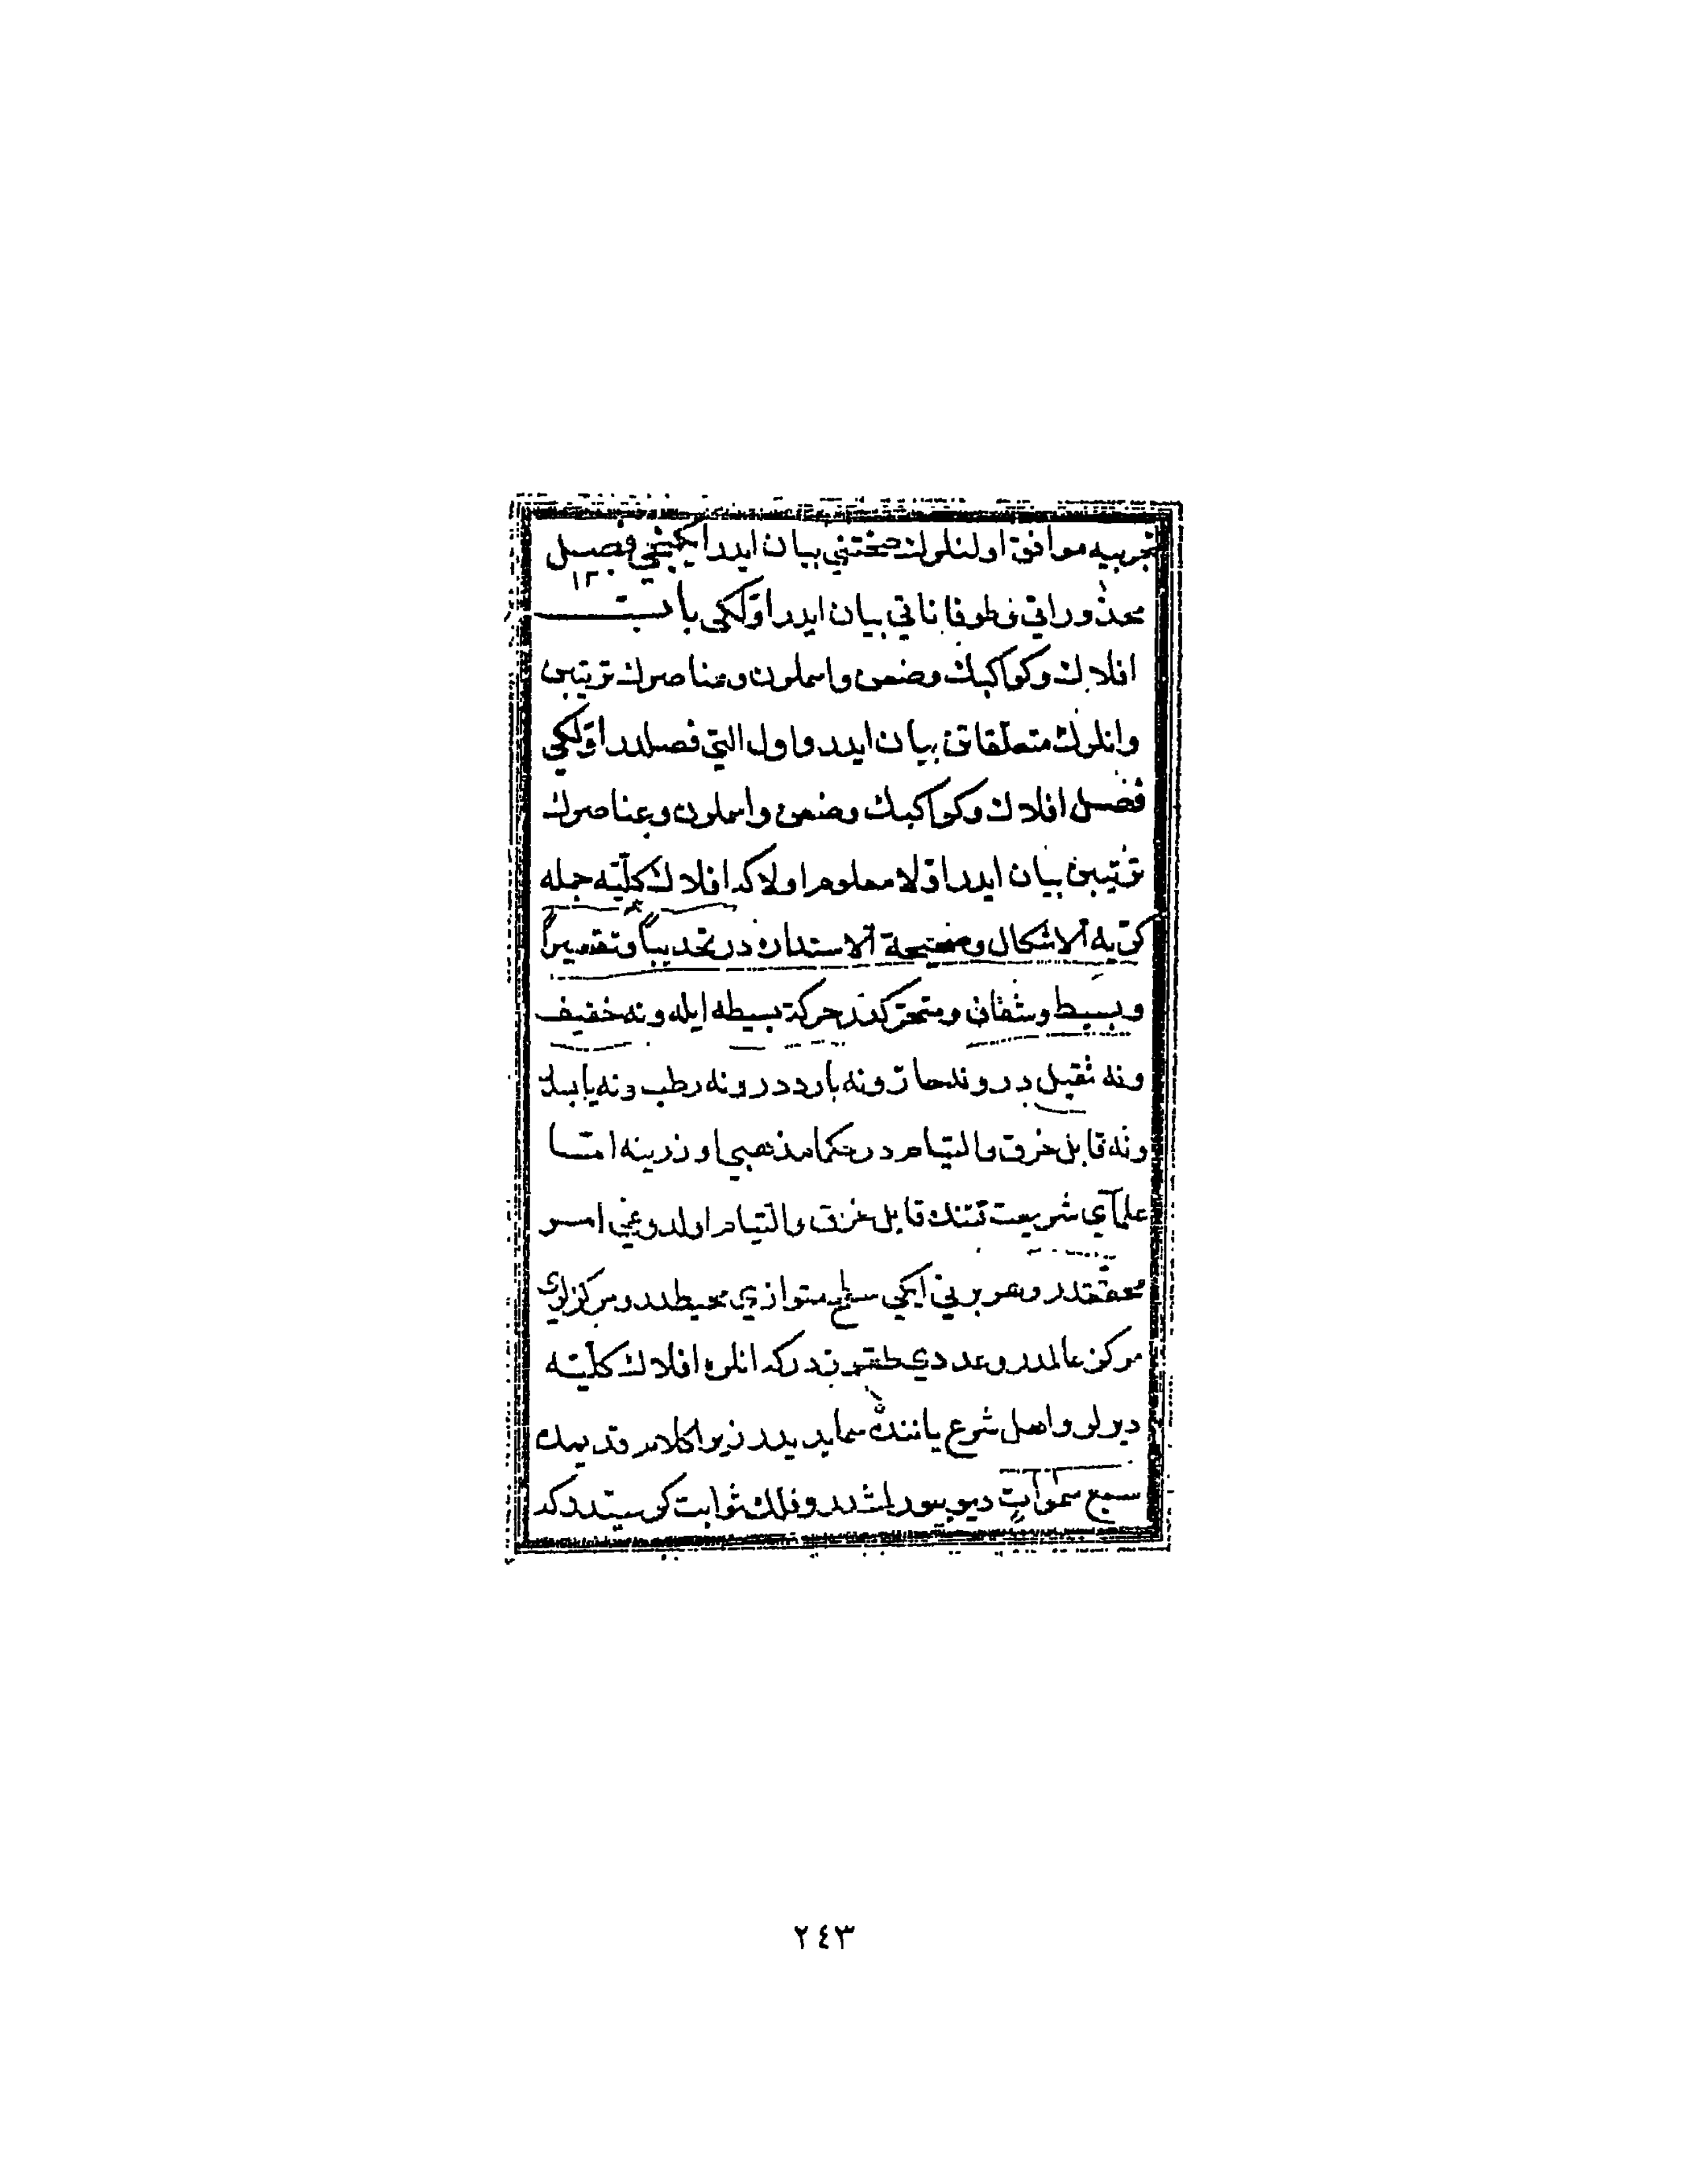 تجربیه موافق اولنلرك صحتنی بیان ایدر ایکنجی فصل
١٢
محذوراتی وطوفاناتی بیان ایدر اوّلکی باب
افلاك وکواکبك وضعن واسملرن وعناصرك ترتیبن
وانلرك متعلّقاتن بیان ایدر واول التی فصلدر اوّلکی
فصل افلاك وکواکبك وضعن واسملرن وعناصرك
ترتیبن بیان ایدر اوّلا معلوم اولا که افلاك کلّیّه جمله
کرّیة الاشکال وصحیحة الاستداره در تحدیباً وتقعیراً
وبسیط وشفّافن ومتحرّکدر حرکة بسیطه ایله ونه خفیف
ونه ثقیل در ونه حارّ ونه بارددر ونه رطب ونه یابسدر
ونه قابل خرق والتیام در حکما مذهبی اوزرینه امّا
علمآی شریعت قتنده قابل خرق والتیام اولدوغی امر
محقّقدر وهر برنی ایکی سطح متوازی محیطدر ومرکزلری
مرکز عالمدر وعددی طقوزدر که انلره افلاك کلّیّه
دیرلر واهل شرع یاننده سما یدیدر زیرا کلام قدیمده
سبع سموات دیو بیورلمشدر وفلك ثوابت کرسیدر که
٢٤٣